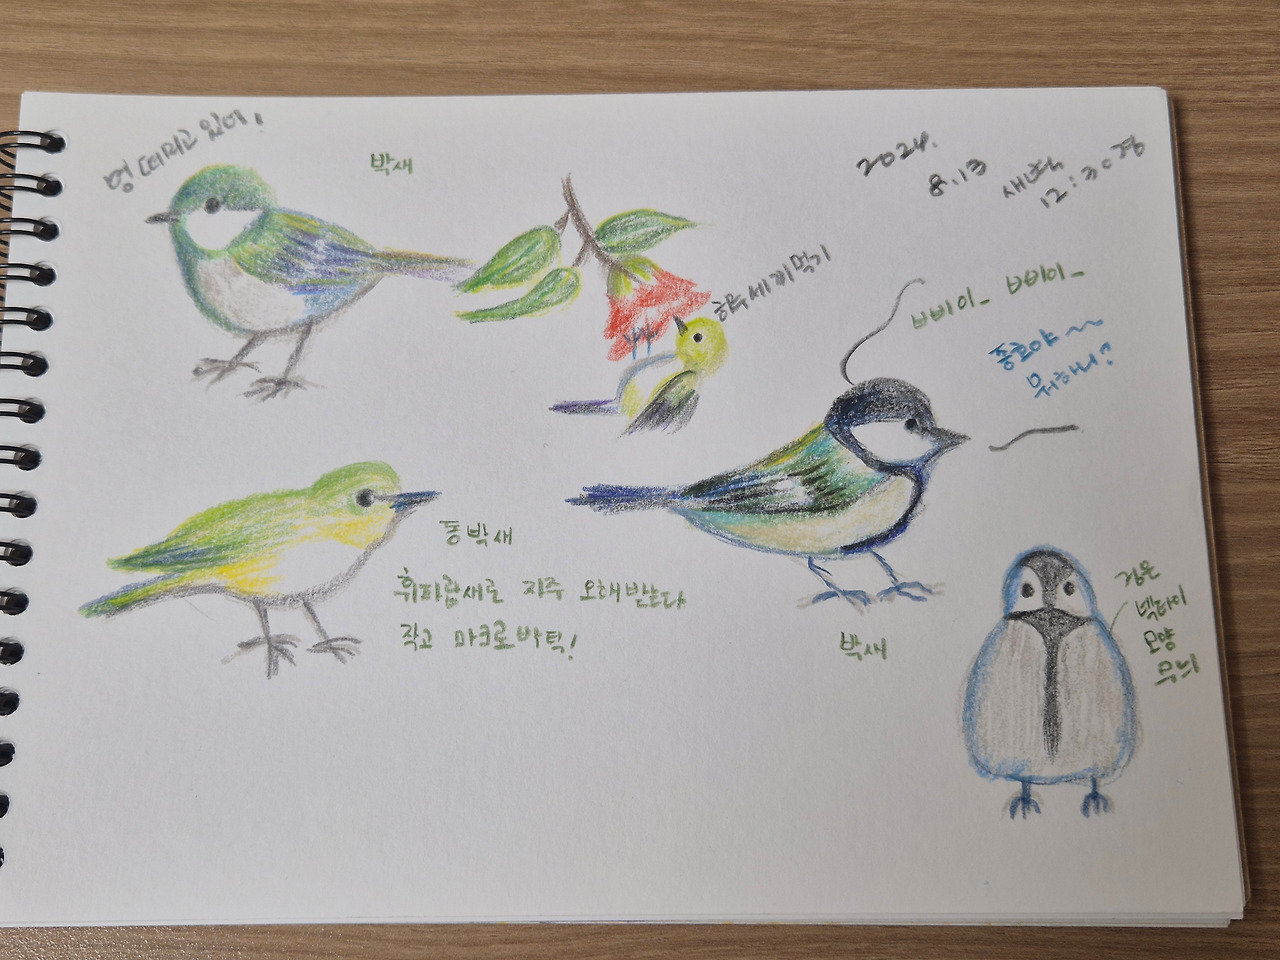 멍 때리고 있어!
박새
2024.
8.13
새벽
12:30경
하루 세끼 먹기
ㅂ삐이- ㅂ삐이-
종호야~~
뭐하니?
동박새
휘파람새로 자주 오해받는다
작고 마크로바틱!
박새
검은
넥타이
모양
무늬